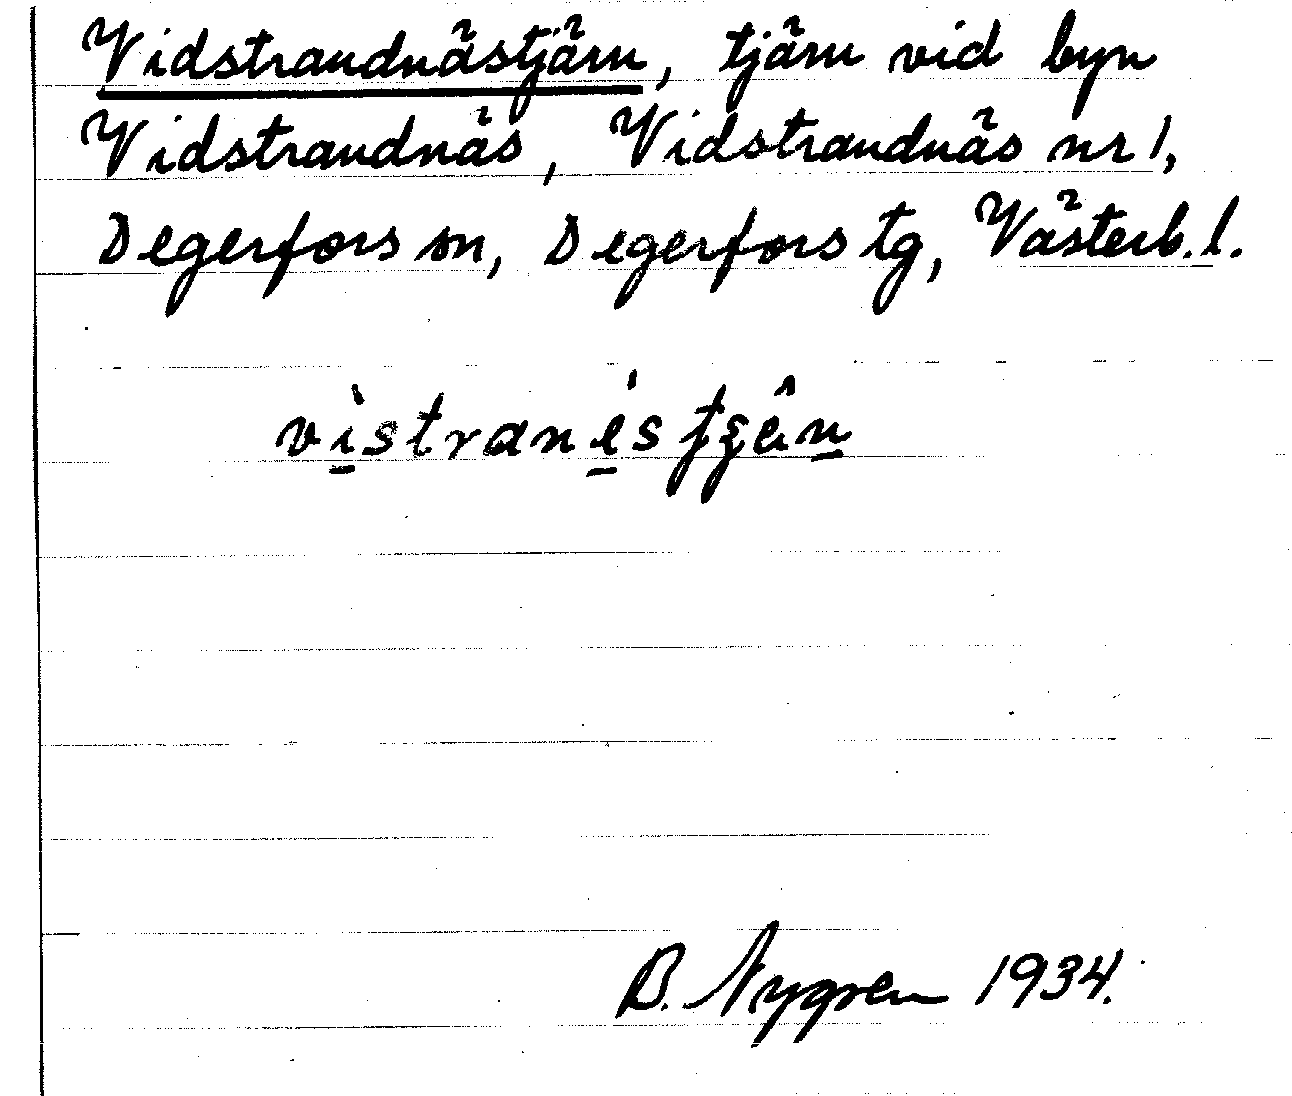 Vidstrandnästjärn, tjärn vid byn
Vidstrandnäs, Vidstrandnäs nr 1,
Degerfors sn, Degerfors tg, Västerb. l.
B. Nygren 1934.